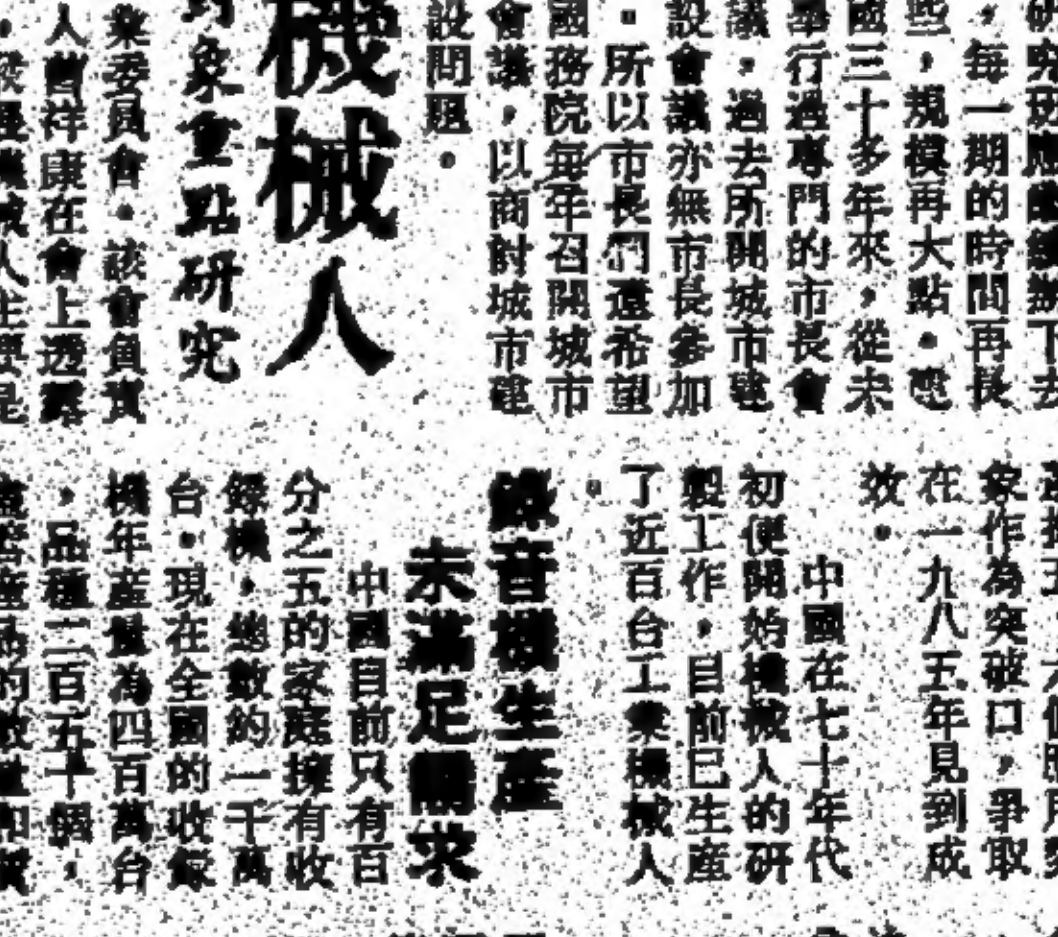 下去
，每一期的時間再長
些，規模再大點。
國三十多年來，從未
舉行過專門的市長會
議。過去所開城市建
設會議亦無市長參加
。所以市長們還希望
國務院每年召開城市
會議，以商討城市建
設問題。
機械人
對象重點研究
業委員會。該會負責
人曾祥康在會上透露
人主要是
家作為突破口，爭取
在一九八五年見到成
效。
中國在七十年代
初便開始機械人的研
製工作，目前已生產
了近百台工業機械人
。
錄音機生產
未滿足需求
中國自前只有百
分之五的家庭擁有收
錄機，總數約一千萬
台。現在全國的收錄
機年產量為四百萬台
，品種二百五十個，